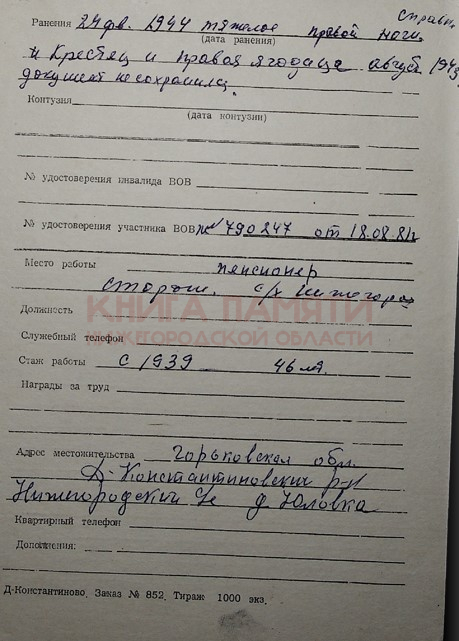 справк.
Ранения 24 фев. 1944 тяжелое правой ноги.
(дата ранения)
и Крестец и правая ягодица август 1943
документ не сохранился.
Контузия
(дата контузии)
№ удостоверения инвалида ВОВ
№ удостоверения участника ВОВ № 790247 от 18.08.81г
Место работы пенсионер
сторож. с/х Нижегород
КНИГА ПАМЯТИ
НИЖЕГОРОДСКОЙ ОБЛАСТИ
Должность
Служебный телефон
Стаж работы с 1939 46 лет.
Награды за труд
Адрес местожительства Горьковская обл.
Д-Константиновский р-н
Нижегородский с/с д. Юловка
Квартирный телефон
Дополнения:
Д-Константиново, Заказ № 852. Тираж 1000 экз.